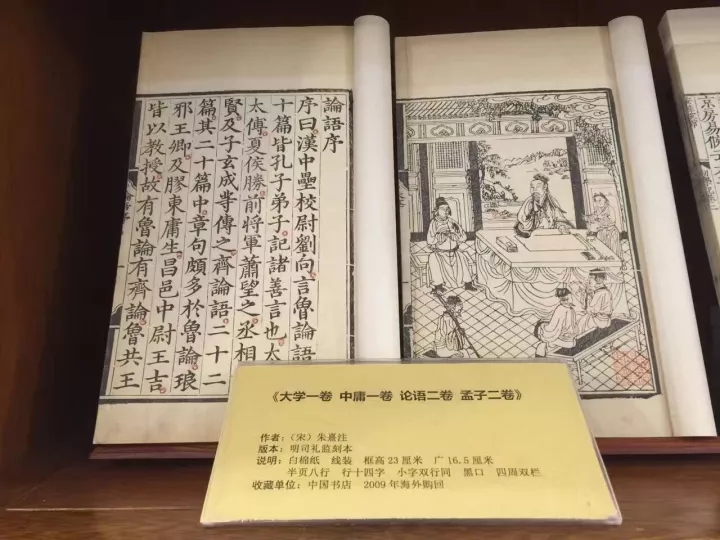 論語序
序曰漢中壘校尉劉向言魯論語
十篇皆孔子弟子記諸善言也太
太傅夏侯勝前將軍蕭望之丞相
賢及子玄成等傳之齊論語二十二
篇其二十篇中章句頗多於魯論琅
邪王卿及膠東庸生昌邑中尉王吉
皆以教授故有魯論有齊論魯共王
京房易候
《大学一卷 中庸一卷 论语二卷 孟子二卷》
作者:(宋)朱熹注
版本:明司礼监刻本
说明:白棉纸 线装 框高23厘米 广16.5厘米
半页八行 行十四字 小字双行同 黑口 四周双栏
收藏单位:中国书店 2009年海外购回